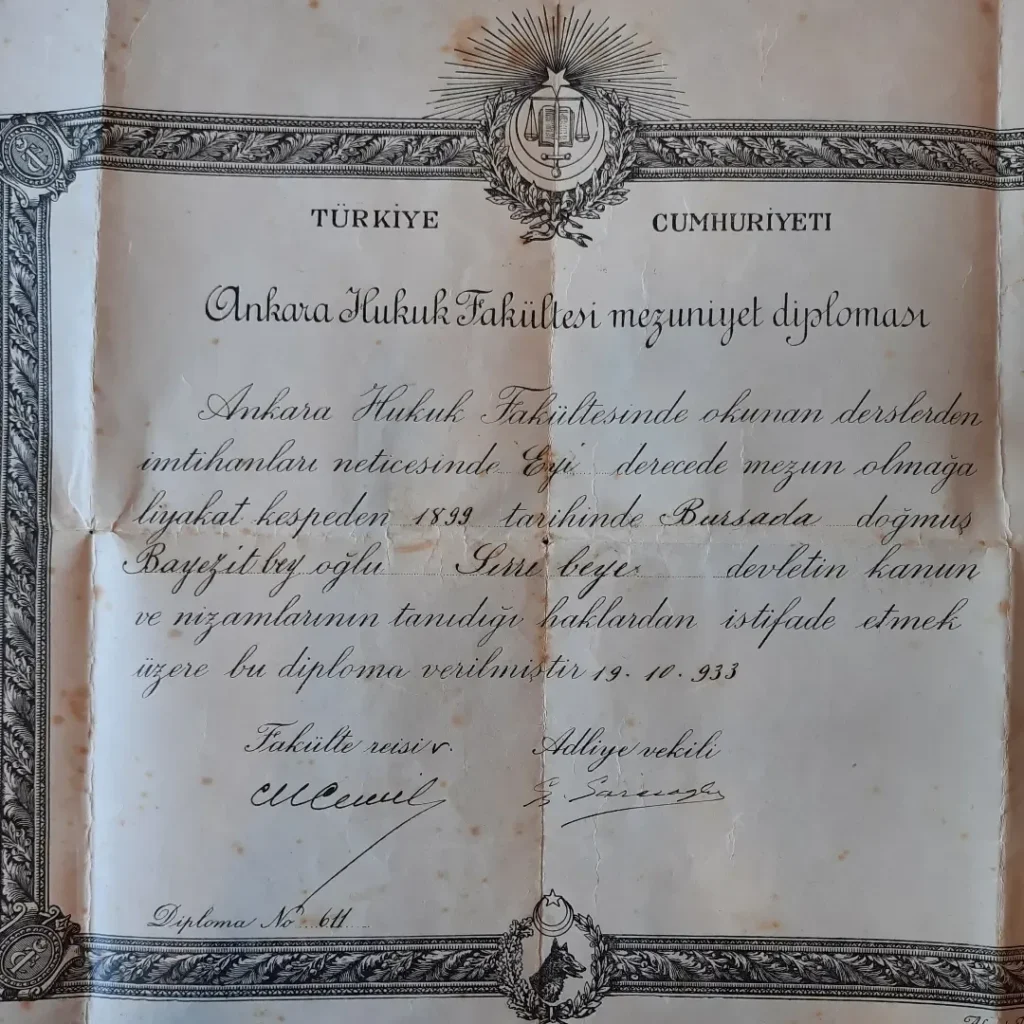 TÜRKİYE CUMHURİYETI
Ankara Hukuk Fakültesi mezuniyet diploması
Ankara Hukuk Fakültesinde okunan derslerden
imtihanları neticesinde Eyi derecede mezun olmağa
liyakat kespeden 1899 tarihinde Bursada doğmuş
Bayezit bey oğlu Sırrı beye devletin kanun
ve nizamlarının tanıdığı haklardan istifade etmek
üzere bu diploma verilmiştir 19. 10. 933
Fakülte reisi v. Adliye vekili
Diploma No 611